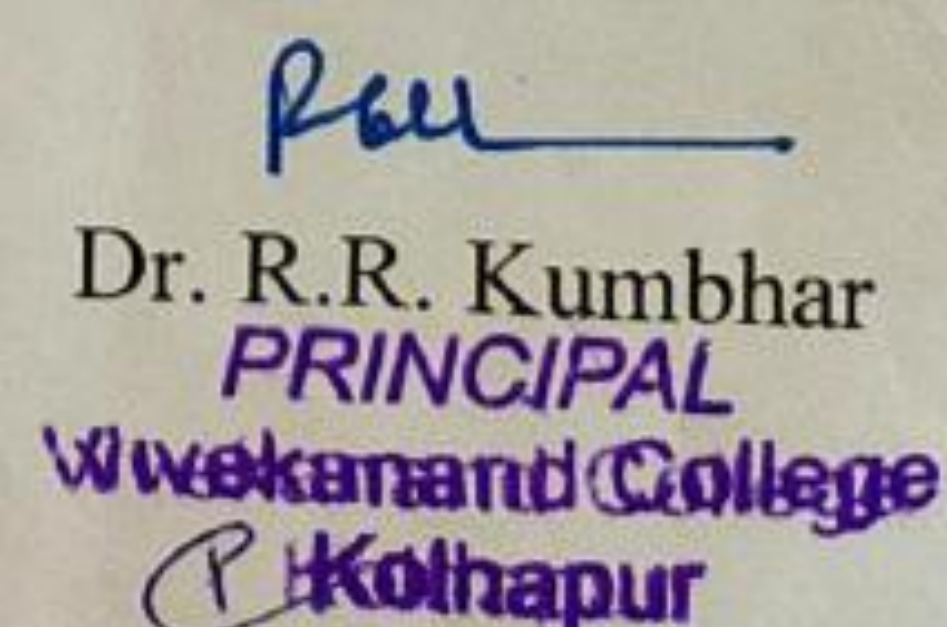 Dr. R.R. Kumbhar
PRINCIPAL
Vivekanand College
Kolhapur